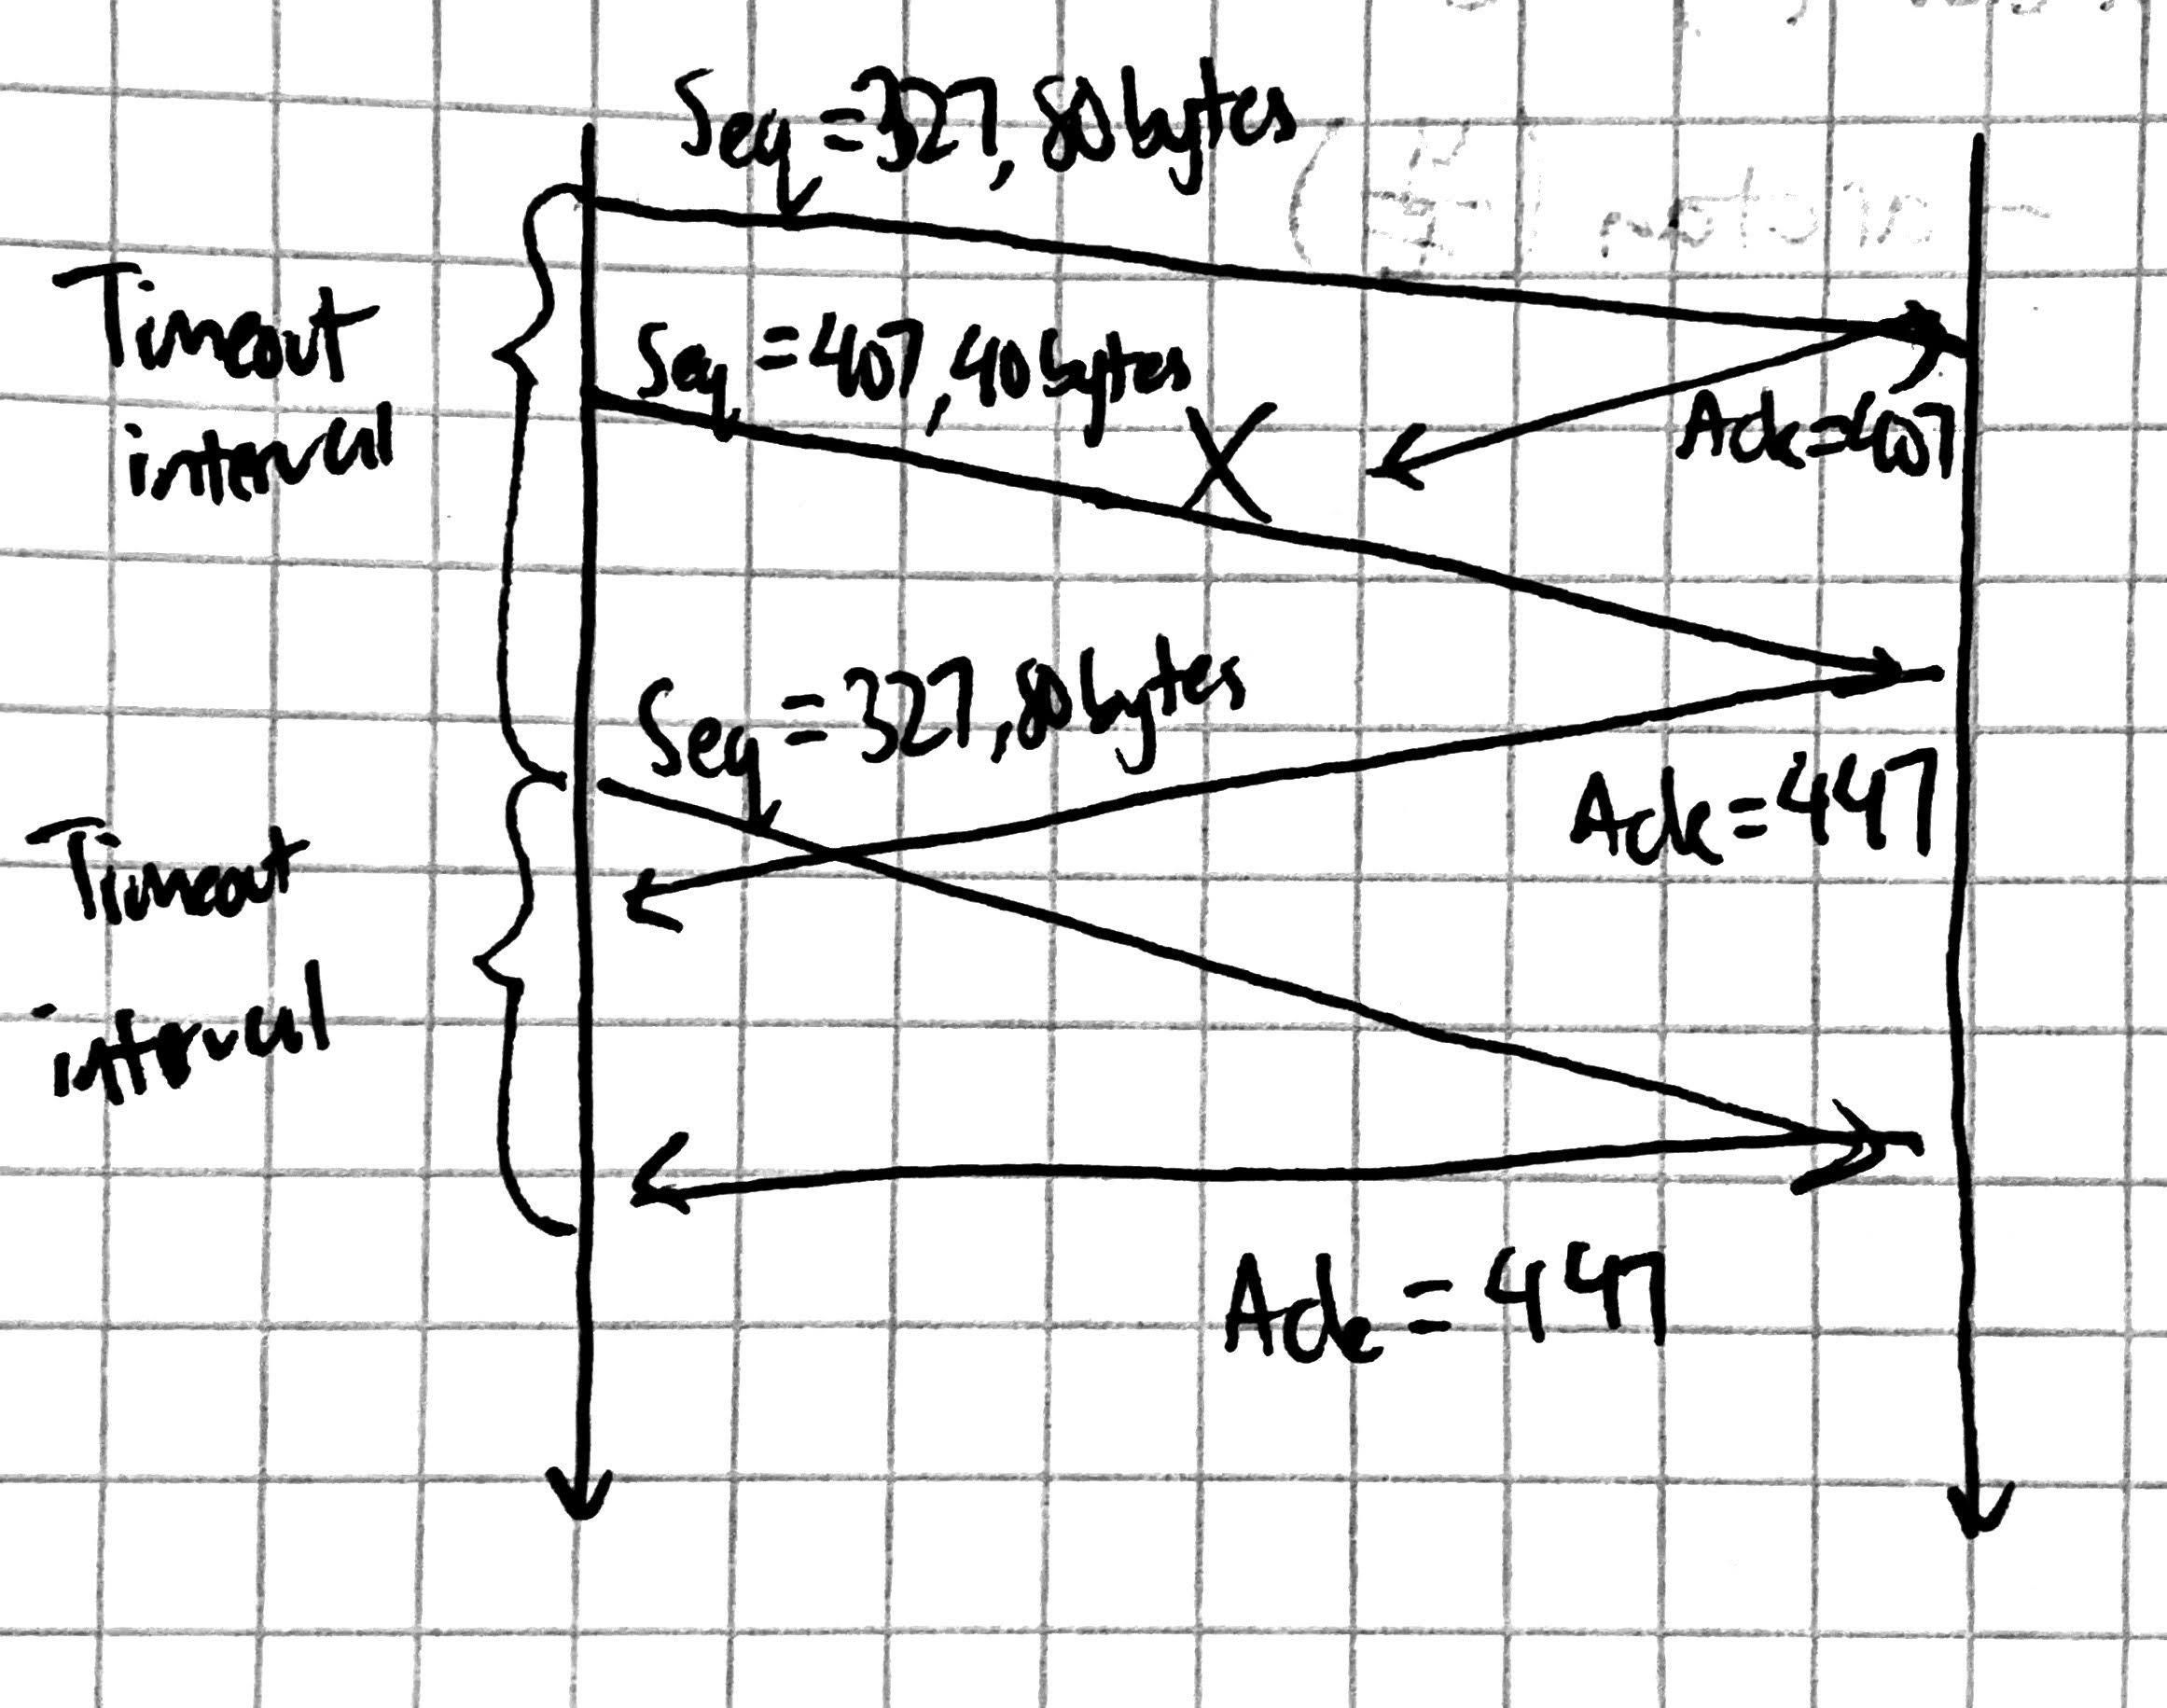 Seq = 327, 80 bytes
Timeout
interval
Seq = 407, 40 bytes
X
Ack = 407
Seq = 327, 80 bytes
Ack = 447
Timeout
interval
Ack = 447